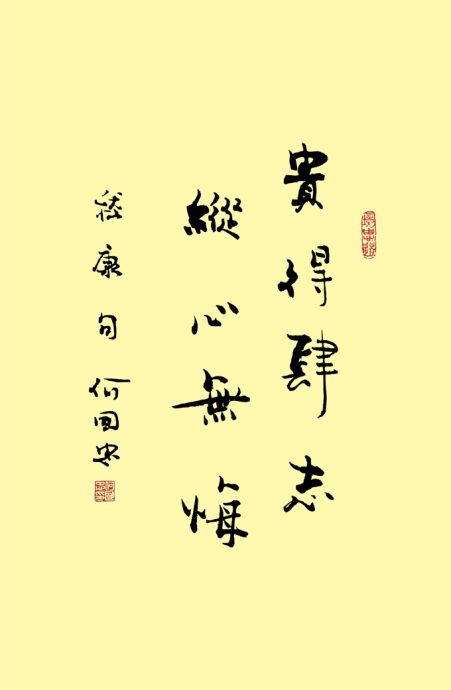 貴得肆志
縱心無悔
嵇康句 何国忠